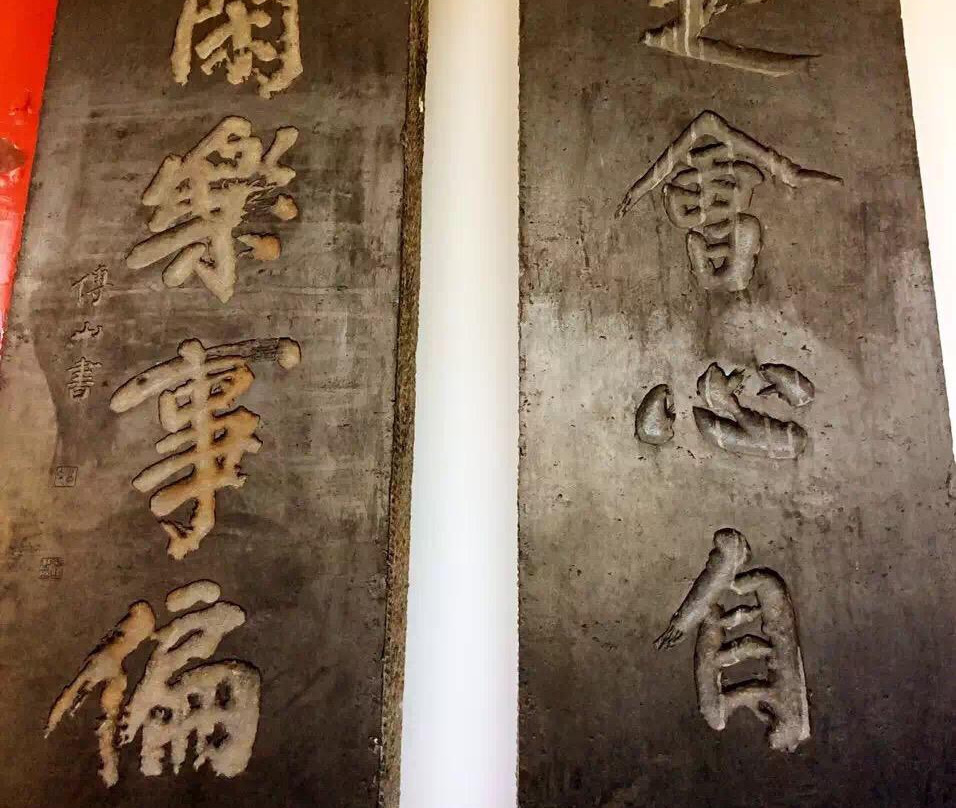 會心自
閑樂事偏
傅山書